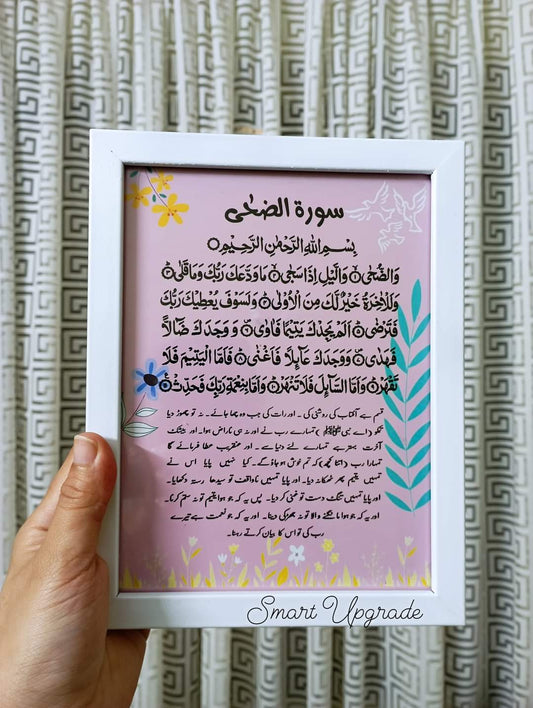 سورة الضحى
بِسْمِ اللهِ الرَّحْمٰنِ الرَّحِيْمِ
وَالضُّحٰى۝ وَالَّيْلِ اِذَا سَجٰى۝ مَا وَدَّعَكَ رَبُّكَ وَمَا قَلٰى۝
وَلَلْاٰخِرَةُ خَيْرٌ لَّكَ مِنَ الْاُوْلٰى۝ وَلَسَوْفَ يُعْطِيْكَ رَبُّكَ
فَتَرْضٰى۝ اَلَمْ يَجِدْكَ يَتِيْمًا فَاٰوٰى۝ وَ وَجَدَكَ ضَآلًّا
فَهَدٰى۝ وَوَجَدَكَ عَآىِٕلًا فَاَغْنٰى۝ فَاَمَّا الْيَتِيْمَ فَلَا
تَقْهَرْ۝ وَاَمَّا السَّآىِٕلَ فَلَا تَنْهَرْ۝ وَاَمَّا بِنِعْمَةِ رَبِّكَ فَحَدِّثْ۝
قسم ہے آفتاب کی روشنی کی۔ اور رات کی جب وہ چھا جائے۔ نہ تو چھوڑ دیا
تجکو (اے نبی ﷺ) تمہارے رب نے اور نہ ہی ناراض ہوا۔ اور بیشک
آخرت بہتر ہے تمہارے لئے دنیا سے۔ اور عنقریب عطا فرمائے گا
تمہارا رب (اتنا کچھ) کہ تم خوش ہو جاؤ گے۔ کیا نہیں پایا اس نے
تمہیں یتیم پھر ٹھکانہ دیا۔ اور پایا تمہیں ناواقف تو سیدھا رستہ دکھایا۔
اور پایا تمہیں تنگ دست تو غنی کر دیا۔ پس یہ کہ جو ہوا یتیم تو نہ ستم کرنا۔
اور یہ کہ جو ہوا مانگنے والا تو نہ جھڑکی دینا۔ اور یہ کہ جو نعمت ہے تیرے
رب کی تو اس کا بیان کرتے رہنا۔
Smart Upgrade